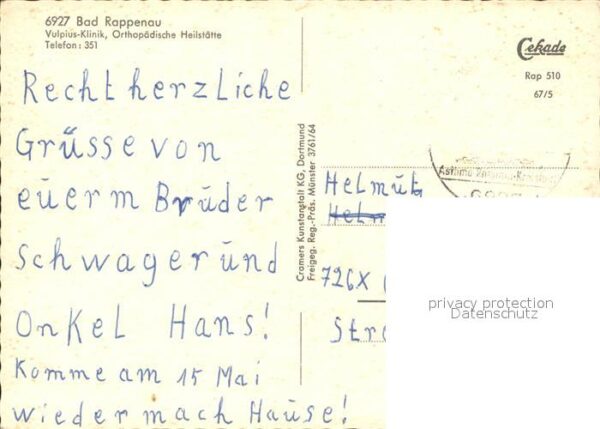 6927 Bad Rappenau
Vulpius-Klinik, Orthopädische Heilstätte
Telefon: 351
Cekade
Rap 510
67/5
Rechtherzliche
Grüsse von
euerm Bruder
Schwager und
Onkel Hans!
Komme am 15 Mai
wieder mach Hause!
Cramers Kunstanstalt KG, Dortmund
Freigeg. Reg.-Präs. Münster 3761/64
Helmut
726X
Str
privacy protection
Datenschutz